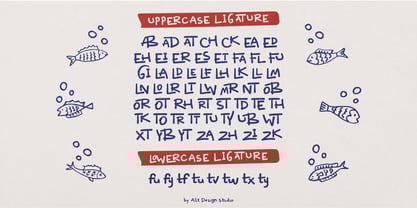 UPPERCASE LIGATURE
AB AD AT CH CK EA ED
EH EI ER ES ET FA FL FU
GI LA LD LE LF LH LK LL LM
LN LO LR LT LW MR NT OB
OR OT RH RT ST TD TE TH
TK TO TR TF TU TY UB WT
XT YB YT ZA ZH ZI ZK
LOWERCASE LIGATURE
fu fy tf tu tv tw tx ty
by ASE Design Studio